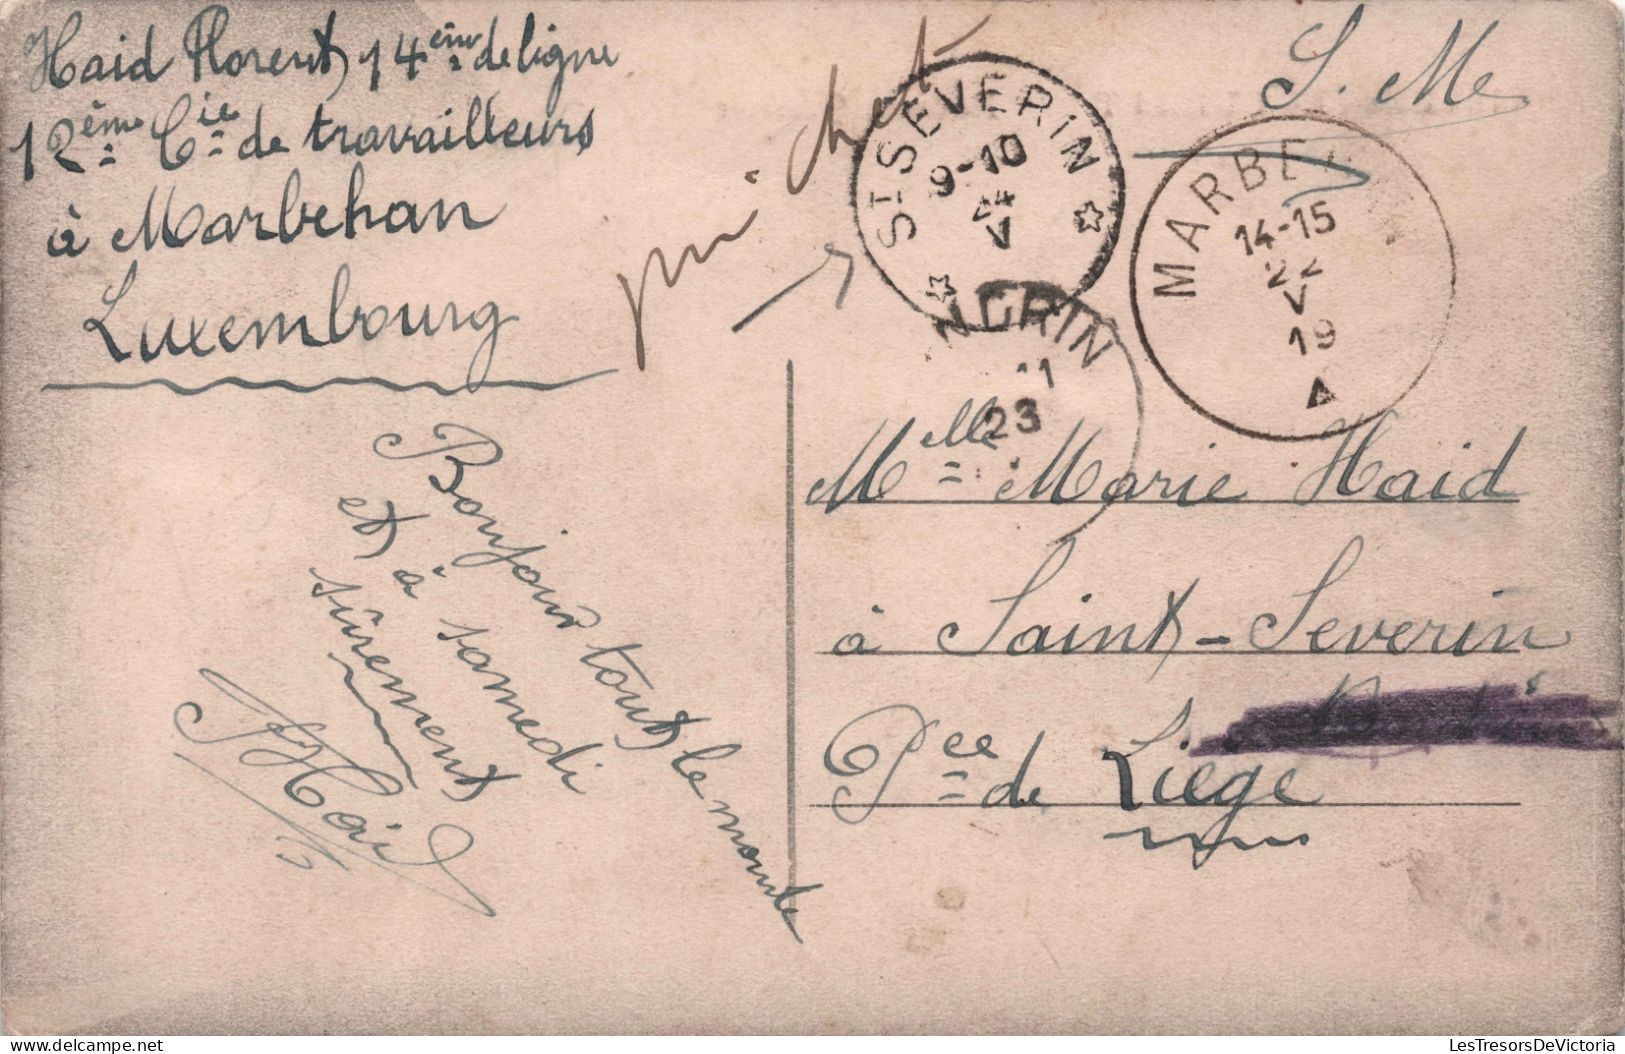 Haid Florent 14ème de ligne
12ème Cie de travailleurs
à Marbehan
Luxembourg
S. M.
ST SEVERIN
9-10
24
V
MARBE
14-15
22
V
19
NDRIN
11
23
Bonjour tout le monde
et à samedi
sûrement
Haid
Melle Marie Haid
à Saint-Severin
Pce de Liege
LesTresorsDeVictoria